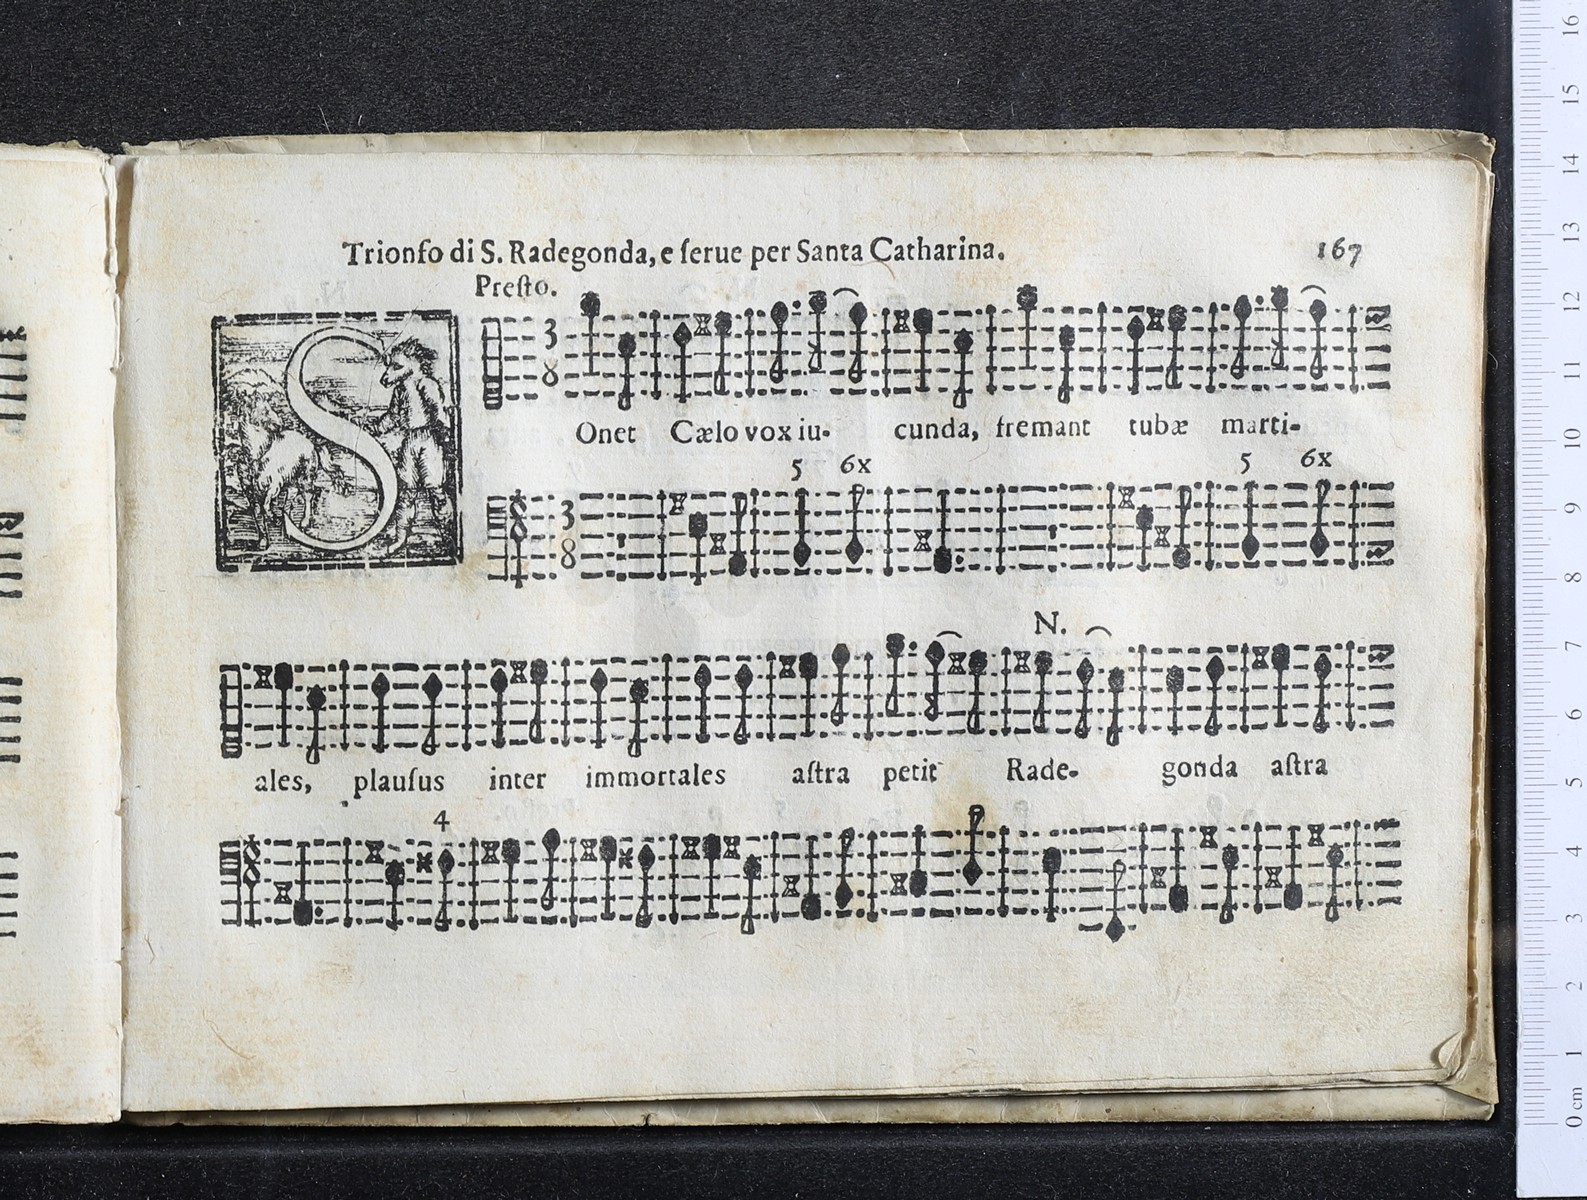 Trionfo di S. Radegonda, e ſerue per Santa Catharina. 167
Preſto.
3
8
SOnet Cælo vox iu- cunda, fremant tubæ marti-
5 6x 5 6x
3
8
N.
ales, plauſus inter immortales aſtra petit Rade- gonda aſtra
4
0 cm 1 2 3 4 5 6 7 8 9 10 11 12 13 14 15 16